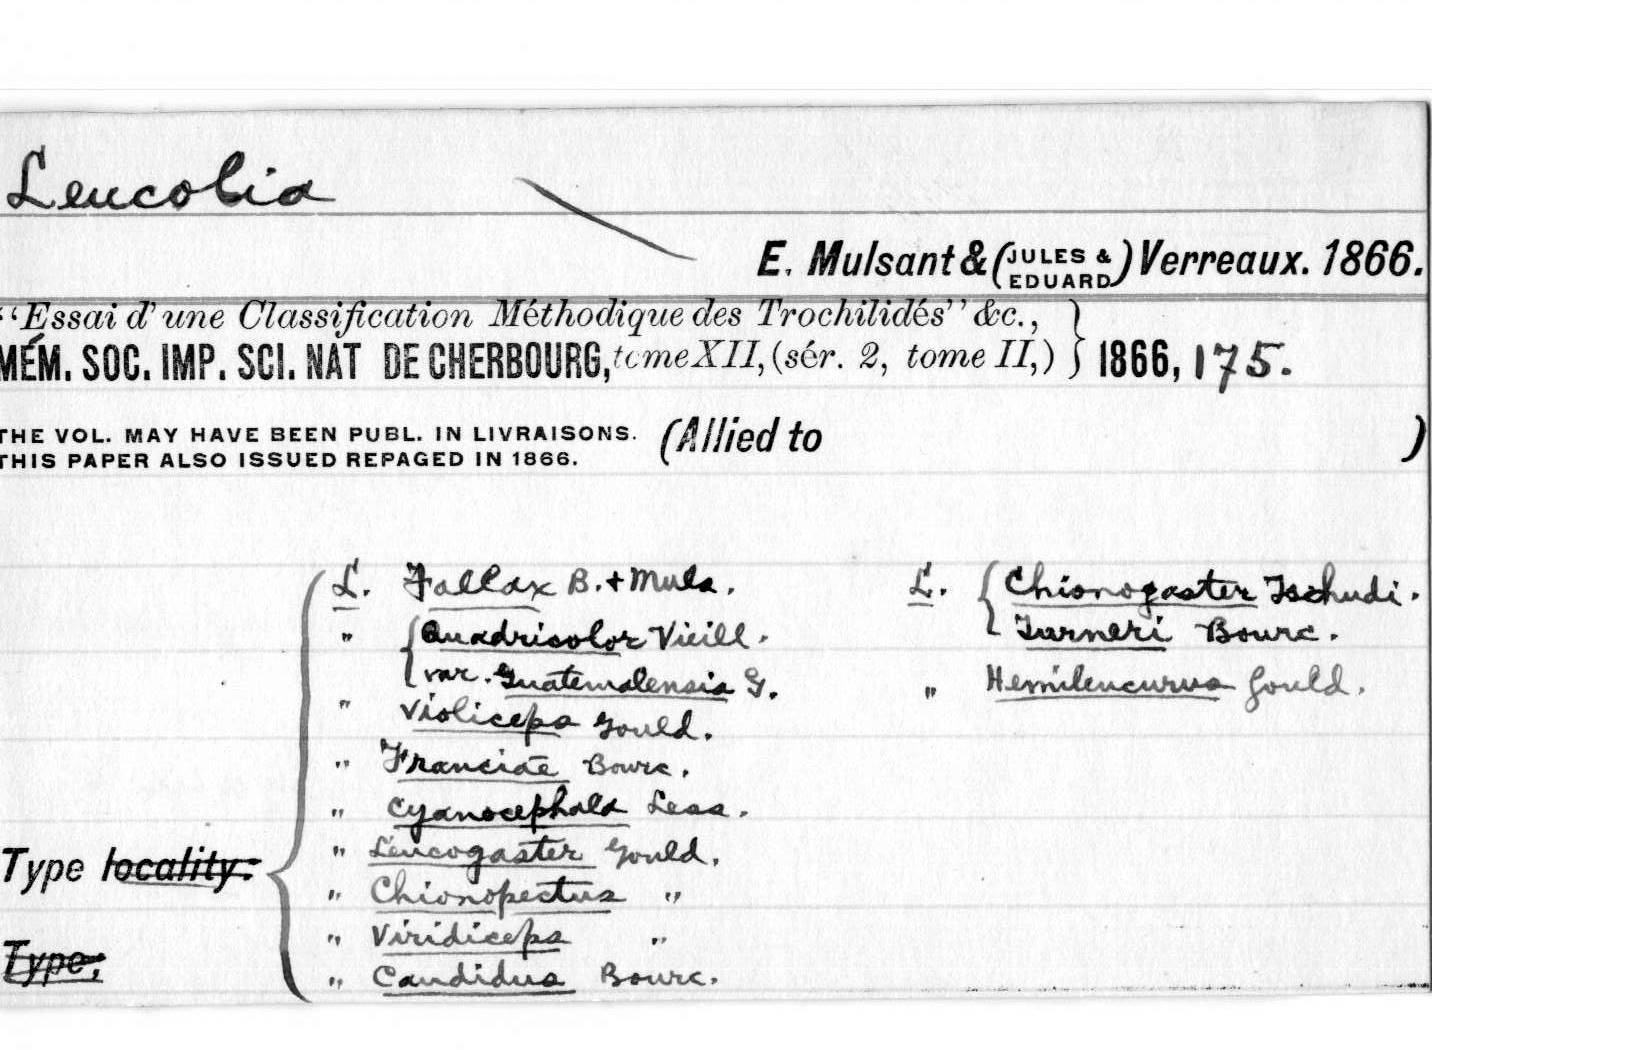 Leucolia
E. Mulsant & (JULES & EDUARD) Verreaux. 1866.
"Essai d'une Classification Méthodique des Trochilidés" &c.,
MÉM. SOC. IMP. SCI. NAT DE CHERBOURG, tome XII, (sér. 2, tome II,) } 1866, 175.
THE VOL. MAY HAVE BEEN PUBL. IN LIVRAISONS.
THIS PAPER ALSO ISSUED REPAGED IN 1866.
(Allied to )
L. Fallax B. + Muls.
" { Quadricolor Vieill.
var. Guatemalensis G.
" Violiceps Gould.
" Franciae Bourc.
" Cyanocephala Less.
" Leucogaster Gould.
" Chionopectus "
" Viridiceps "
" Candidus Bourc.
L. { Chionogaster Tschudi.
Turneri Bourc.
" Hemileucurus Gould.
Type locality:
Type,